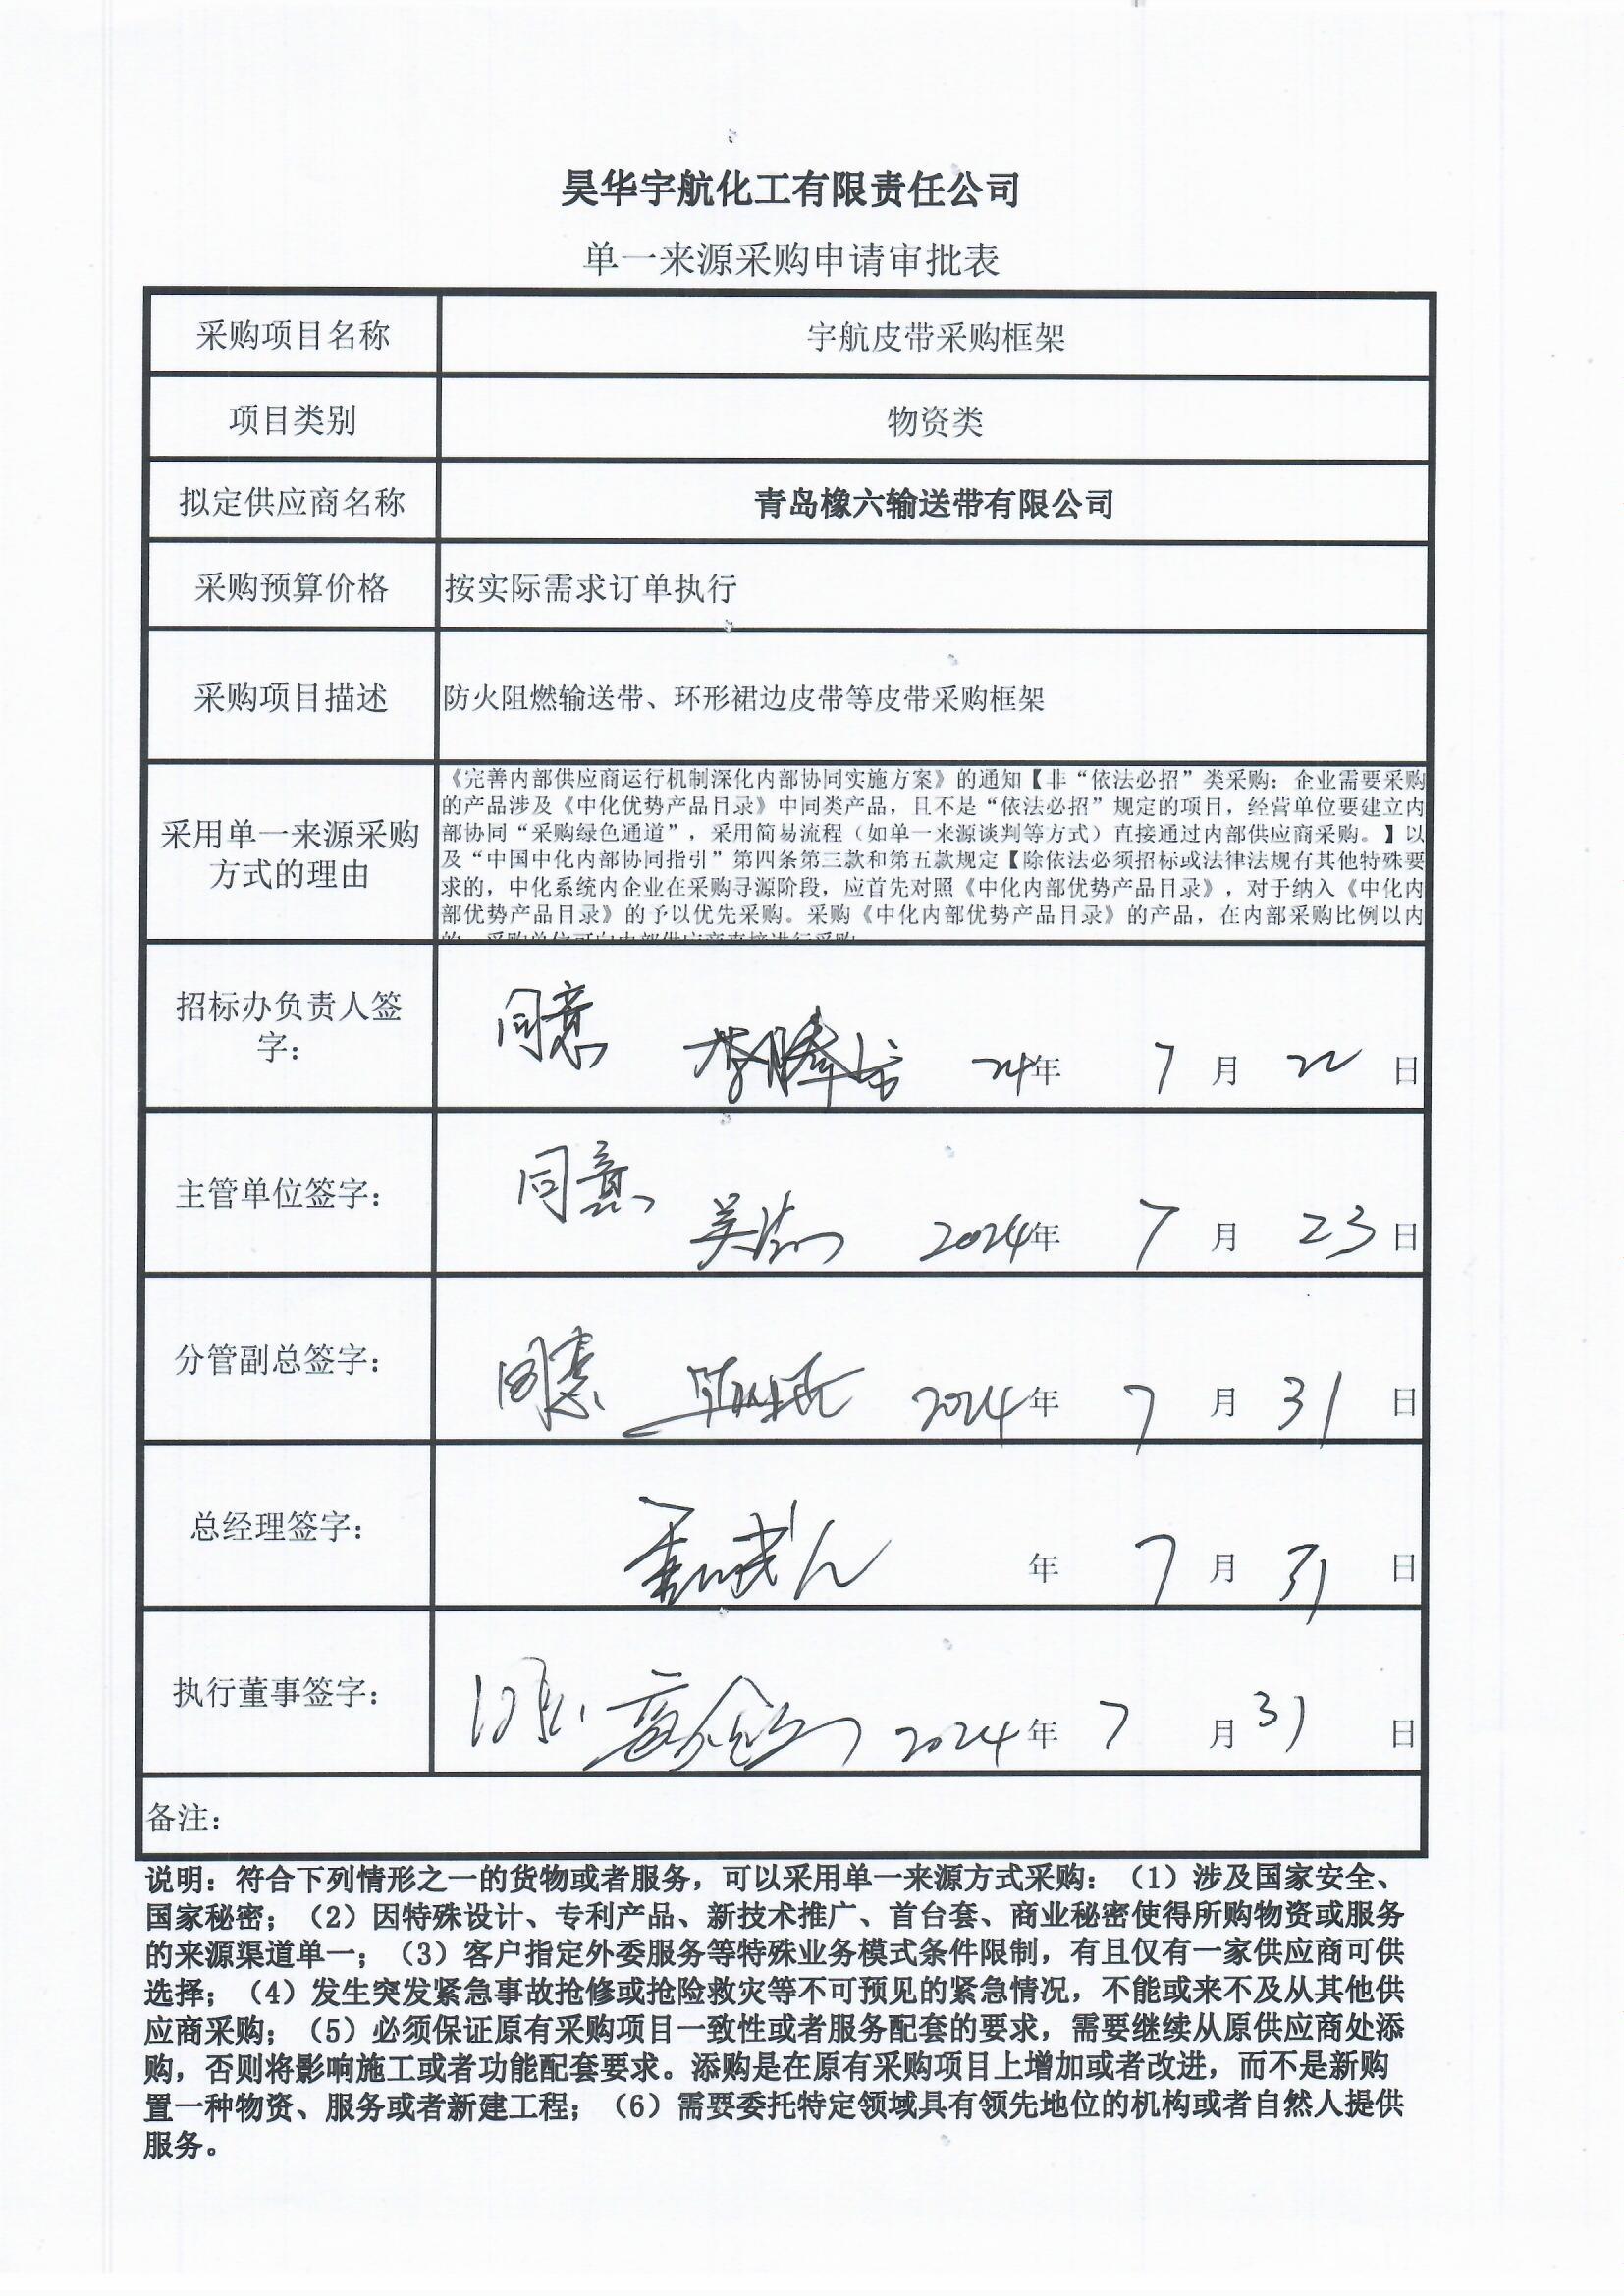 昊华宇航化工有限责任公司
单一来源采购申请审批表
采购项目名称 宇航皮带采购框架
项目类别 物资类
拟定供应商名称 青岛橡六输送带有限公司
采购预算价格 按实际需求订单执行
采购项目描述 防火阻燃输送带、环形裙边皮带等皮带采购框架
采用单一来源采购
方式的理由
《完善内部供应商运行机制深化内部协同实施方案》的通知【非“依法必招”类采购：企业需要采购
的产品涉及《中化优势产品目录》中同类产品，且不是“依法必招”规定的项目，经营单位要建立内
部协同“采购绿色通道”，采用简易流程（如单一来源谈判等方式）直接通过内部供应商采购。】以
及“中国中化内部协同指引”第四条第三款和第五款规定【除依法必须招标或法律法规有其他特殊要
求的，中化系统内企业在采购寻源阶段，应首先对照《中化内部优势产品目录》，对于纳入《中化内
部优势产品目录》的予以优先采购。采购《中化内部优势产品目录》的产品，在内部采购比例以内
招标办负责人签
字：
同意 24年 7 月 22 日
主管单位签字：
同意 2024年 7 月 23 日
分管副总签字：
同意 2024年 7 月 31 日
总经理签字：
年 7 月 31 日
执行董事签字：
2024年 7 月 31 日
备注：
说明：符合下列情形之一的货物或者服务，可以采用单一来源方式采购：（1）涉及国家安全、
国家秘密；（2）因特殊设计、专利产品、新技术推广、首台套、商业秘密使得所购物资或服务
的来源渠道单一；（3）客户指定外委服务等特殊业务模式条件限制，有且仅有一家供应商可供
选择；（4）发生突发紧急事故抢修或抢险救灾等不可预见的紧急情况，不能或来不及从其他供
应商采购；（5）必须保证原有采购项目一致性或者服务配套的要求，需要继续从原供应商处添
购，否则将影响施工或者功能配套要求。添购是在原有采购项目上增加或者改进，而不是新购
置一种物资、服务或者新建工程；（6）需要委托特定领域具有领先地位的机构或者自然人提供
服务。